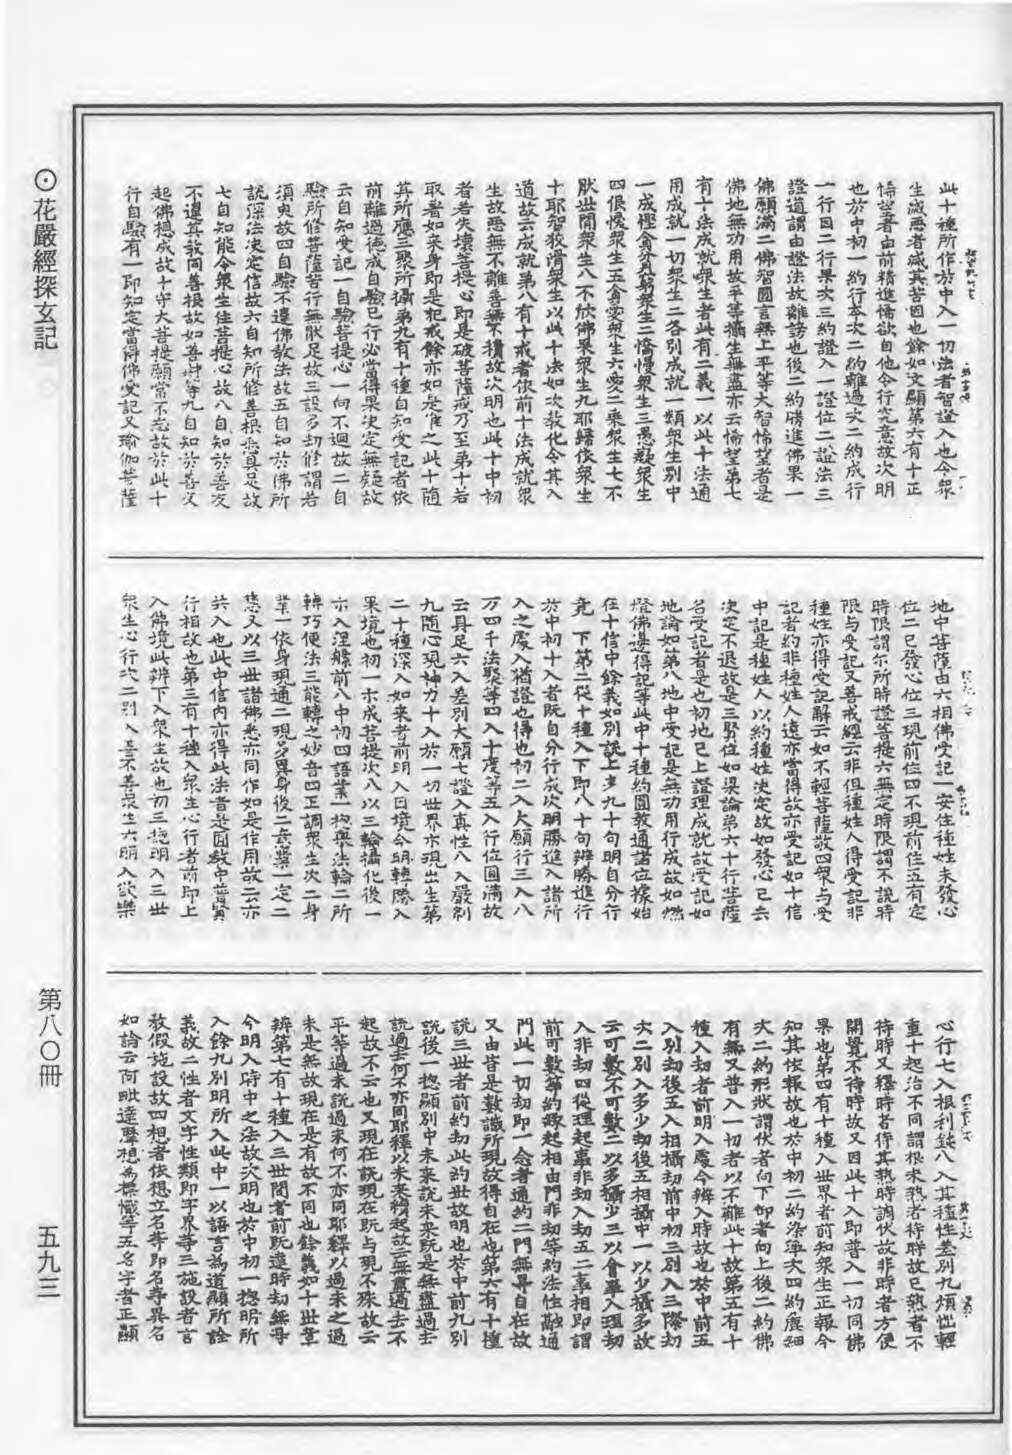 此十種所作方中入一切法者智證入也令眾
生滅惡者滅其苦因也餘如文顯第六有十正
悕望者由前精進悕欲自他令行究竟故次明
也於中初一約行本次二約離過次二約成行
一行因二行果次三約證入一證位二證法三
證道謂由證法故離謗也後二約勝進佛果一
佛願滿二佛智圓言無上平等大智悕望者是
佛地無功用故平等攝生無盡亦云悕望第七
有十法成就眾生者此有二義一以此十法通
用成就一切眾生二各別成就一類眾生別中
一成慳貪貧窮眾生二憍慢眾生三愚癡眾生
四恨慢眾生五貪愛眾生六愛二乘眾生七不
猒世間眾生八不欣佛果眾生九耶歸依眾生
十耶智狡滑眾生以此十法如次教化令其入
道故云成就第八有十戒者依前十法成就眾
生故惡無不離善無不積故次明也此十中初
者若失壞菩提心即是破菩薩戒乃至第十若
取著如來身即是犯戒餘亦如是准之此十隨
其所應三聚所攝第九有十種自知受記者依
前離過德成自驗已行必當得果決定無疑故
云自知受記一自驗菩提心一向不迴故二自
驗所修菩薩苦行無猒足故三設多劫修謂若
須臾故四自驗不違佛教法故五自知於佛所
說深法決定信故六自知所修善根悉真足故
七自知能令眾生住菩提心故八自知於善友
不違其教同善根故如善財等九自知於善父
起佛想成故十守大菩提願當不忘故於此十
行自驗有一即知定當得佛受記又瑜伽菩薩
地中菩薩由六相佛受記一安住種姓未發心
位二已發心位三現前住四不現前住五有定
時限謂尔所時證菩提六無定時限謂不說時
限與受記又善戒經云非但種姓人得受記非
種姓亦得受記解云如不輕菩薩敬四眾與受
記者約非種姓人遠亦當得故亦受記如十信
中記是種姓人以約種姓決定故如發心已去
決定不退故是三賢位如梁論第六十行菩薩
名受記者是也初地已上證理成就故受記如
地論如第八地中受記是無功用行成故如燃
燈佛邊得記等此中十種約圓教通諸位據始
在十信中餘義如別說上多九十句明自分行
竟　下第二從十種入下即八十句辨勝進行
於中初十入者既自分行成次明勝進入諸所
入之處入猶證也得也初二入大願行三入八
万四千法聚等四入十度等五入行位圓滿故
云具足六入差別大願七證入真性八入嚴剎
九隨心現神力十入於一切世界示現出生第
二十種深入如來者前明入因境今明轉勝入
果境也初一示成菩提次八以三輪攝化後一
示入涅槃前八中初四語業一惣與法輪二所
轉巧便法三能轉之妙音四正調眾生次二身
業一依身現通二現多異身後二意業一定二
慧又以三世諸佛悉亦同作如是作用故云亦
共入也此中信內亦得此法者是圓教中普賢
行相故也第三有十種入眾生心行者前即上
入佛境此辨下入眾生故也初三惣明入三世
眾生心行次二別入善不善眾生六明入欲樂
心行七入根利鈍八入其種性差別九煩惱輕
重十起治不同謂根未熟者待時故已熟者不
待時又釋時者待其熟時調伏故非時者方便
開覺不待時故又因此十入即普入一切同佛
果也第四有十種入世界者前知眾生正報今
知其依報故也於中初二約染淨次四約麤細
大二約形狀謂伏者向下仰者向上後二約佛
有無又普入一切者以不離此十故第五有十
種入劫者前明入處今辨入時故也於中前五
入別劫後五入相攝劫前中初三別入三際劫
次二別入多少劫後五相攝中一以少攝多故
云可數不可數二以多攝少三以會事入理劫
入非劫四從理起事非劫入劫五二事相即謂
前可數等約緣起相由門非劫等約法性融通
門此一切劫即一念者通約二門無㝵自在故
又由皆是數識所現故得自在也第六有十種
說三世者前約劫此約世故明也於中前九別
說後一惣顯別中未來說未來既是無盡過去
說過去何不亦同耶釋以未來積起故云無盡過去不
起故不云也又現在說現在既与現不殊故云
平等過未說過未何不亦同耶釋以過未之過
未是無故現在是有故不同也餘義如十世章
辨第七有十種入三世間者前既達時劫無㝵
今明入時中之法故次明也於中初一惣明所
入餘九別明所入此中一以語言為道顯所詮
義故二性者文字性類即字界等三施設者言
教假施設故四想者依想立名等即名等異名
如論云何毗達摩想為標幟等五名字者正顯
⊙花嚴經探玄記
第八〇冊
五九三